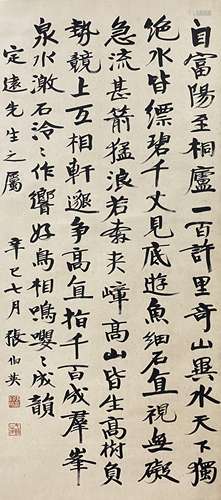 自富陽至桐廬一百許里奇山異水天下獨
絕水皆縹碧千丈見底遊魚細石直視無礙
急流甚箭猛浪若奔夾嶂高山皆生高樹負
勢競上互相軒邈爭高直指千百成羣峯
泉水激石泠〻作響好鳥相鳴嚶〻成韻
定遠先生之屬
辛巳七月張伯英